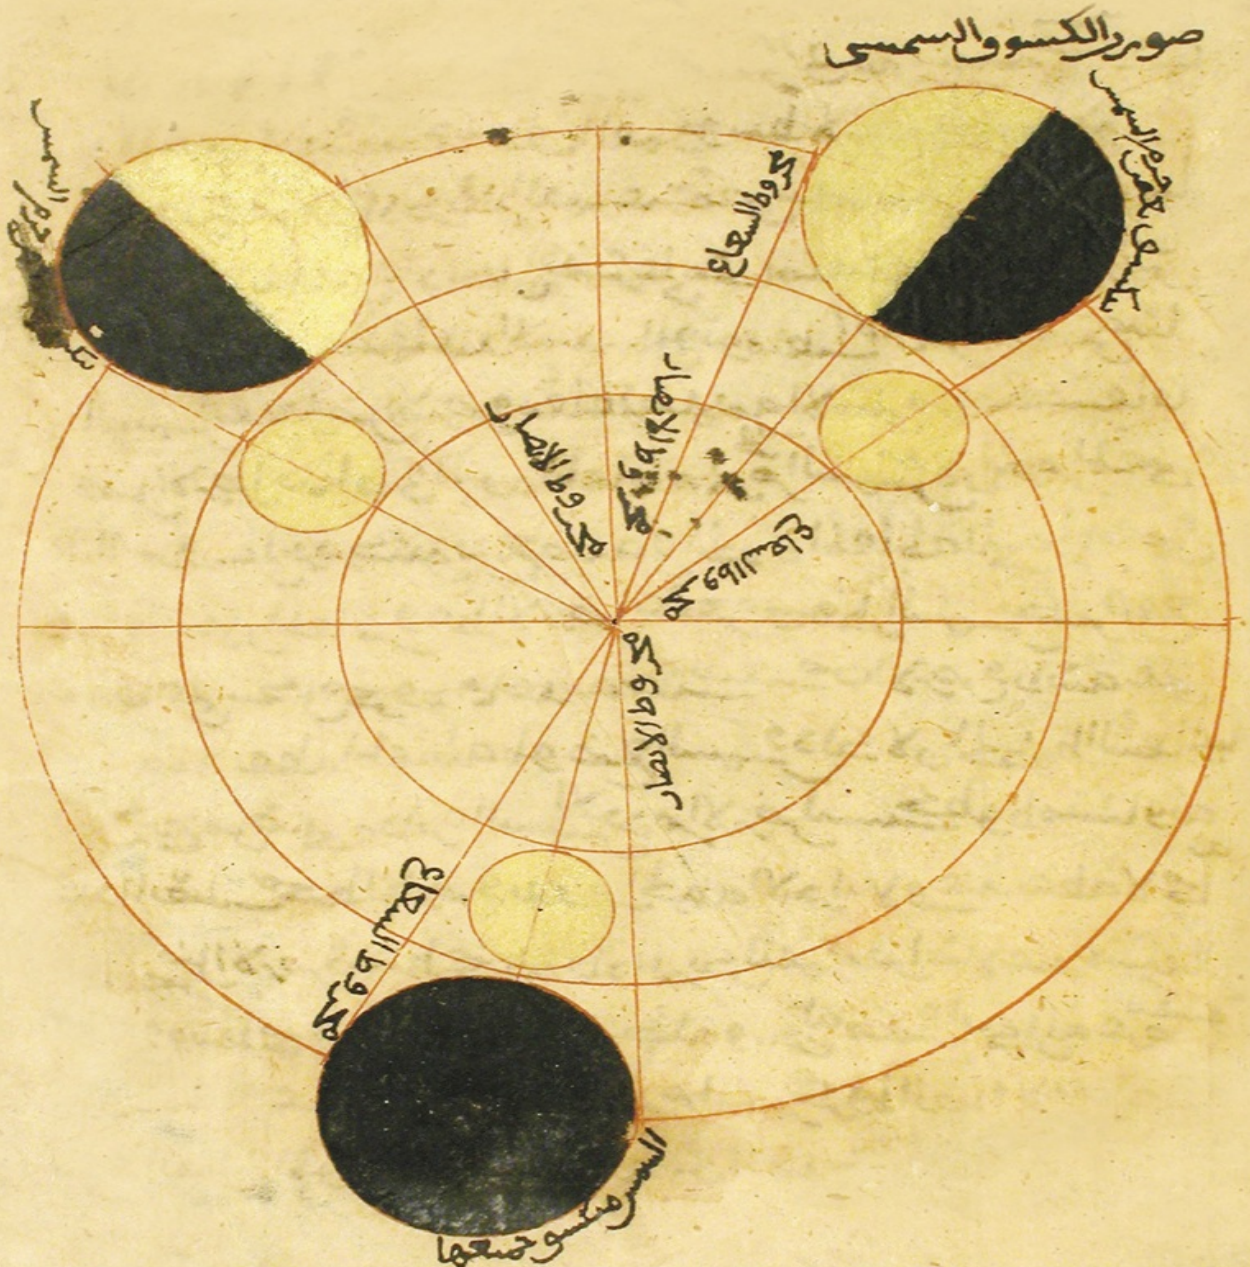 صورة الكسوف الشمسي
ينكسف بعض جرم الشمس
جرم الشمس
مخروط الشعاع
مخروط الابصار
مخروط الابصار
مخروط الشعاع
مخروط الابصار
مخروط الشعاع
الشمس منكسف جميعها